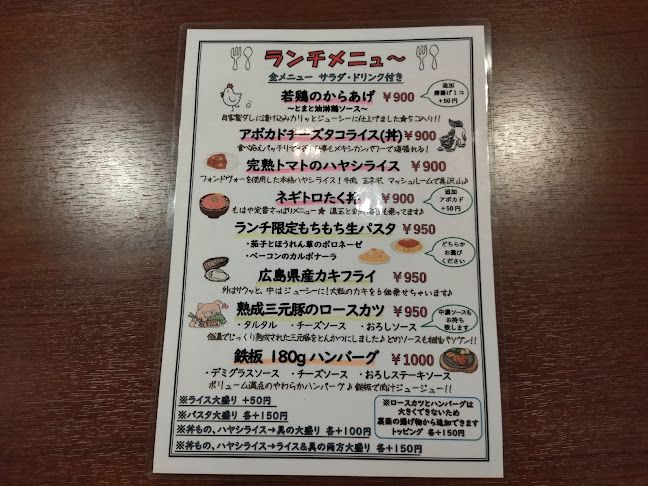 ランチメニュ〜
全メニュー サラダ・ドリンク付き
若鶏のからあげ ¥900
追加
唐揚げ1コ
+50円
〜とまと油淋鶏ソース〜
自家製ダレに漬け込みカリッとジューシーに仕上げました★5コ入り!!
アボカドチーズタコライス(丼) ¥900
メキシカンパワーで頑張れる!
完熟トマトのハヤシライス ¥900
フォンドヴォーを使用した本格ハヤシライス!牛肉、玉ネギ、マッシュルームで具沢山♪
ネギトロたく丼 ¥900
追加
アボカド
+50円
もはや定番さっぱりメニュー★ 温玉と 乗ってます♪
ランチ限定もちもち生パスタ ¥950
・茄子とほうれん草のボロネーゼ
・ベーコンのカルボナーラ
どちらか
お選び
ください
広島県産カキフライ ¥950
外はサクッと、中はジューシーに!大粒のカキを6個乗せちゃいます♪
熟成三元豚のロースカツ ¥950
・タルタル ・チーズソース ・おろしソース
中濃ソースも
お持ち
致します
低温でじっくり熟成された三元豚をとんかつにしました♪どのソースも相性バツグン!!
鉄板 180gハンバーグ ¥1000
・デミグラスソース ・チーズソース ・おろしステーキソース
ボリューム満点のやわらかハンバーグ♪ 鉄板で肉汁ジュージュー!!
※ライス大盛り +50円
※パスタ大盛り 各+150円
※丼もの、ハヤシライス→具の大盛り 各+100円
※丼もの、ハヤシライス→ライス&具の両方大盛り 各+150円
※ロースカツとハンバーグは
大きくできないため
裏面の揚げ物から追加できます
トッピング 各+150円